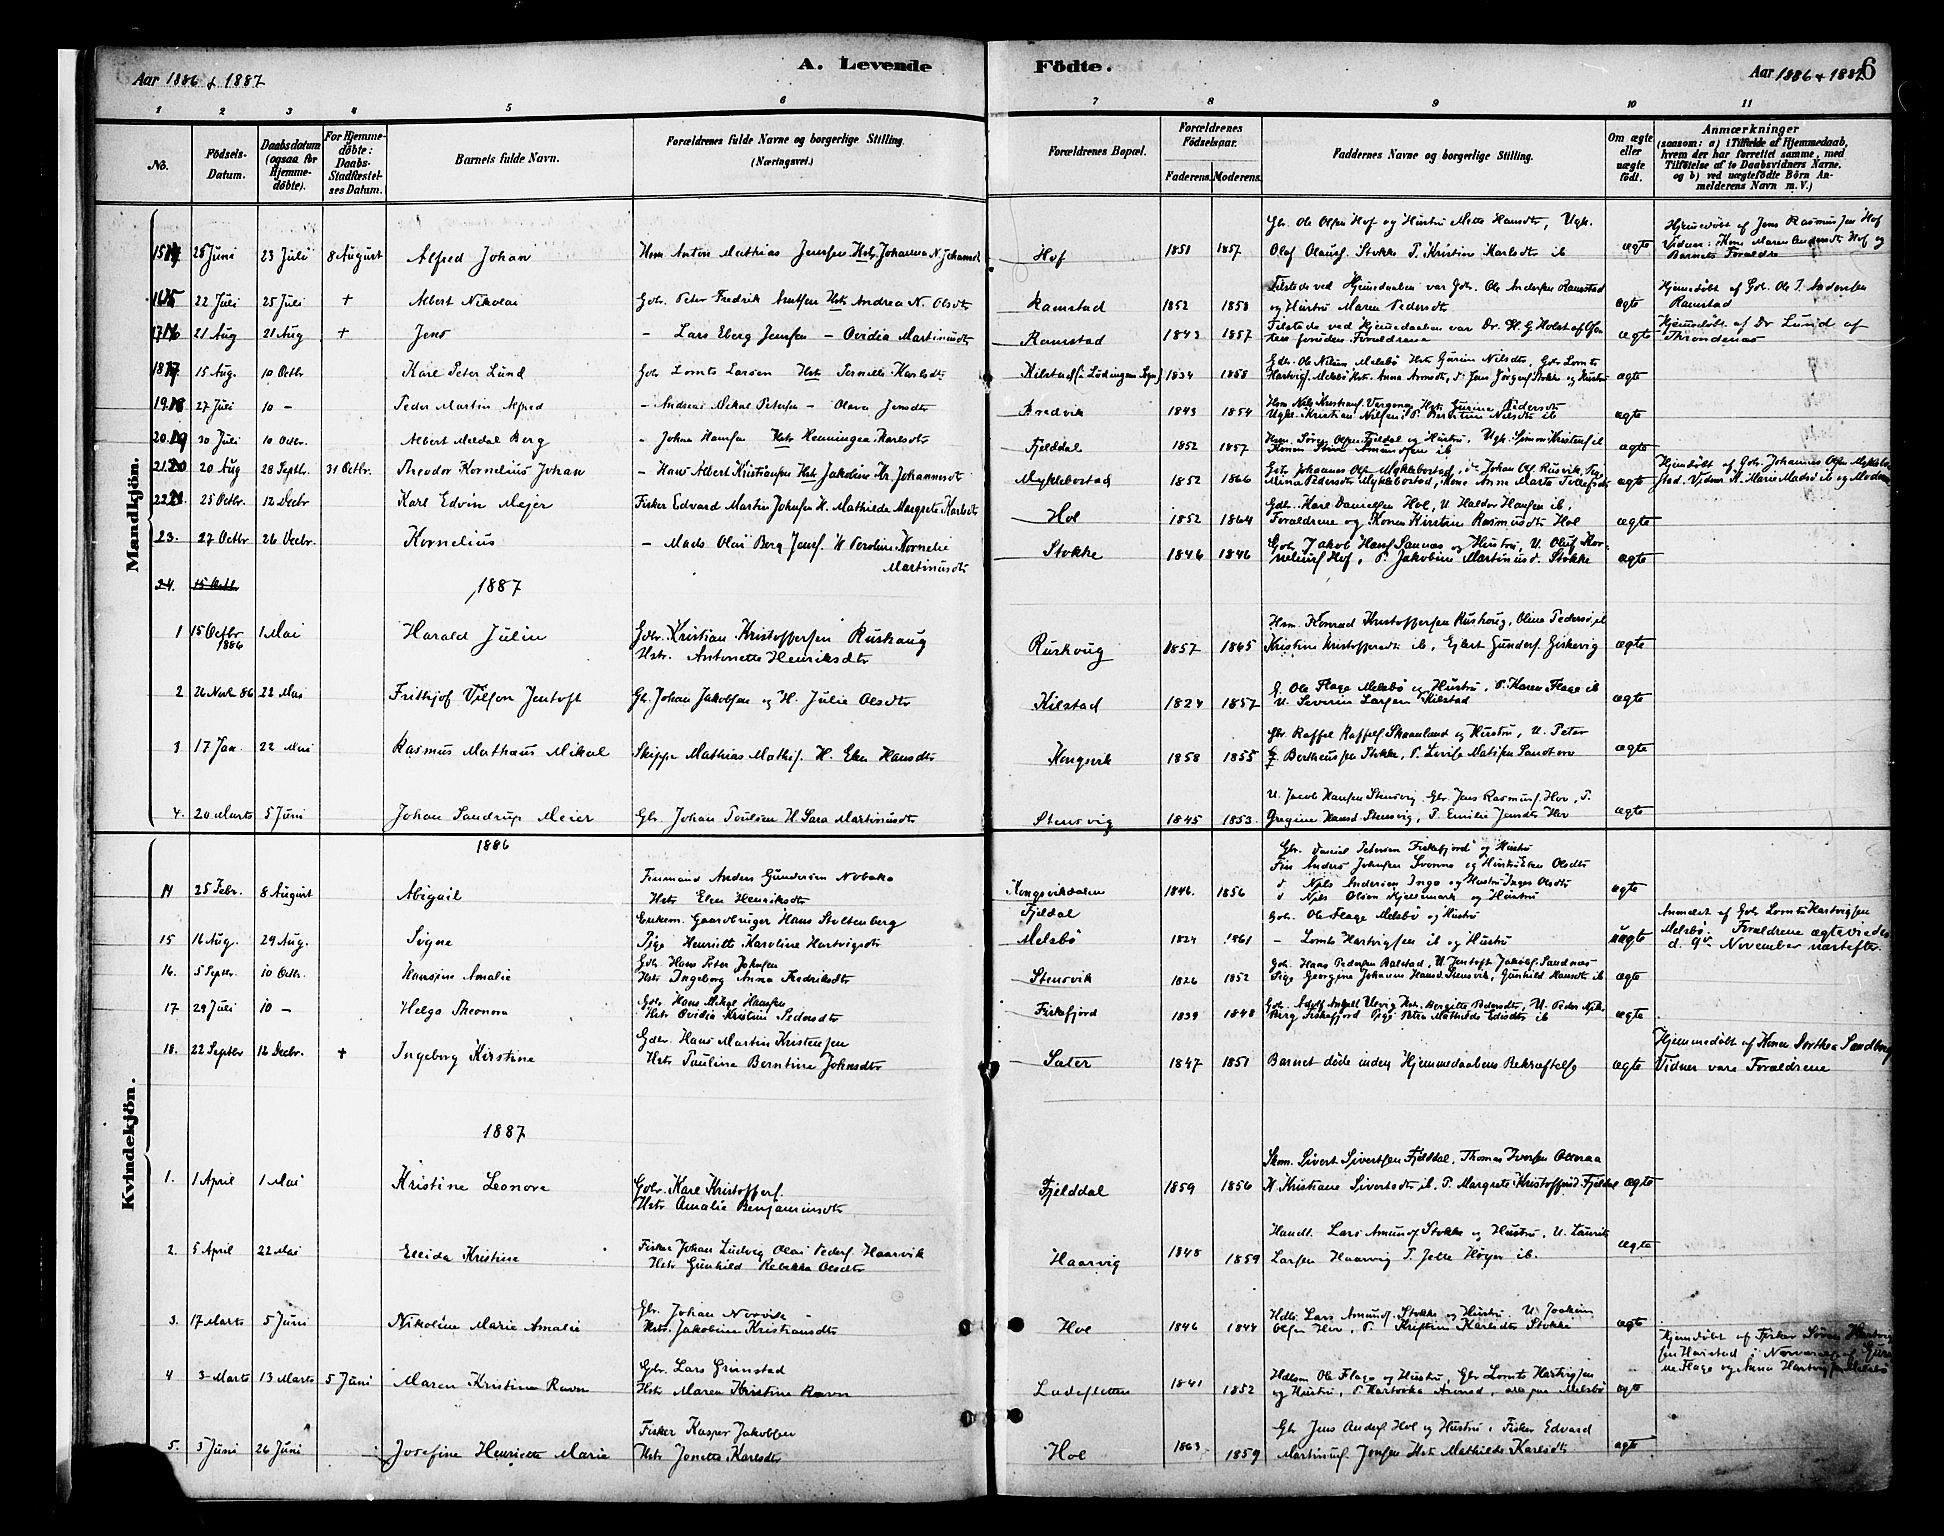 Aar 1886 & 1887
A. Levende
Födte.
Aar 1886 & 1887
6
1 2 3 4 5 6 7 8 9 10 11
No.
Födsels-Datum.
Daabsdatum (ogsaa for Hjemmedöbte).
For Hjemmedöbte: Daabs-Stadfæstelses Datum.
Barnets fulde Navn.
Forældrenes fulde Navne og borgerlige Stilling.
(Næringsvei.)
Forældrenes Bopæl.
Forældrenes Födselsaar.
Faderens. Moderens.
Faddernes Navne og borgerlige Stilling.
Om ægte eller uægte födt.
Anmærkninger
(saasom: a) i Tilfælde af Hjemmedaab, hvem der har forrettet samme, med Tilföielse af to Daabsvidners Navne, og b) ved uægtefödte Börn Anmelderens Navn m. V.)
Mandkjön.
25 Juni 23 Juli 8 August Alfred Johan Hsm Anton Mathias Jenssen Hstr Johanna N. Johannsdt Hof 1857 Gbr. Ole Olsen Hof og Hustru Mette Hansdtr, Ugk. Olaf Olausf. Stokke P. Kristine Karlsdtr ib ægte Hjemmedöbt af Jens Rasmussen Hof Vidner: Kone Maren Andersdtr Hof og Barnets Forældre
22 Juli 25 Juli + Albert Nikolai Gbr. Peter Fredrik Hstr Andrea N. Olsdtr Ramstad 1852 1858 Tilstede ved Hjemmedaaben var Gbr. Ole Andersen Ramstad og Hustru Maren Pedersdtr ægte Hjemmedöbt af Gbr. Ole Andersen Ramstad
21 Aug 21 Aug + Jens - Lars Eberg Jenssen - Ovidia Martinusdtr Ramstad 1843 1857 Tilstede ved Hjemmedaaben var Dr. Holst foruden Forældrene ægte Hjemmedöbt af Dr Lund af Throndenæs
15 Aug. 10 Octbr Karl Peter Lund Gbr Lomts Larsen Hstr Pernille Karlsdtr Kilstad (i Lödingen Sogn) 1834 1858 Gbr. Ole Nilsen Melsbö Hstr Gurine Nilsdtr, Gbr Lomts Hartvigs. Melsbö Hstr Anna Arnsdtr, Stokke og Hustru ægte
27 Juli 10 - Peder Martin Alfred - Andreas Mikal Petersen - Olava Jensdtr Bredvik 1843 1854 Hstr Gurine Pedersdtr Ugk. Kristian Nilsen, P. Berntine Nilsdtr ib ægte
30 Juli 10 Octbr. Albert Meldal Berg - Johan Hansen Hstr Henningea Karlsdtr Fjelddal 1852 1857 Hsm. Sören Olsen Fjeldal og Hustru, Ugk. Simon Kristens. ib ægte
20 Aug 28 Septbr. 31 Octbr. Theodor Kornelius Johan - Hans Albert Kristiansen Hstr Jakobine Johannesdtr Myklebostad 1852 1866 Gbr. Johannes Ols. Myklebostad, Johan Ols. Rusvik, Pedersdtr Myklebostad, Kone Anne Marta Tollefsdtr ægte Hjemdöbt af Gbr. Johannes Olsen Myklebostad. Vidner Marie Madsd ib og Moderen
25 Octbr. 12 Decbr Karl Edvin Mejer Fisker Edvard Martin Johnsen H. Mathilde Margrete Karlsdtr Hol 1852 1864 Gbr. Karl Danielsen Hol, U. Haldor Hansen ib. Forældrene og Konen Kirsten Rasmusdtr Hol ægte
23. 27 Octbr 26 Decbr. Kornelius - Mads Olai Berg Jensf. H Peroline Kornelia Martinusdtr Stokke 1846 1846 Gbr Jakob Hansf Sannæs og Hustru, U. Oluf Korneliusf Hof, P. Jakobine Martinusd. Stokke ægte
24. 15 Octb. 1887
1 15 Octbr 1886 1 Mai Harald Julin Gdbr. Kristian Kristoffersen Ruskaug Hstr. Antonette Henriksdtr Ruskoug 1857 1865 Hsm. Konrad Kristoffersen Ruskoug, Olina Pedersd ib Kristine Kristoffersdtr ib, Ejlert Gunders. Geskevig ægte
2 26 Novb 86 22 Mai Frithjof Vilson Jentoft Gbr. Johan Jakobsen og H. Julie Olsdtr Kilstad 1824 1857 G. Ole Flage Melsbö og Hustru, P. Karen Flage ib U. Severin Larsen Kilstad ægte
3 17 Jan. 22 Mai Rasmus Mathæus Mikal Skipper Mathias Mathis. H. Elen Hansdtr Kongsvik 1858 1855 Gbr. Raffel Raffels. Skaanland og Hustru, U. Peter Bertheussen Stokke, P. Lovise Matisen Sandtorv ægte
4. 20 Marts 5 Juni Johan Sandrup Meier Gbr. Johan Poulsen H Sara Martinusdtr Stensvig 1845 1853. U. Jacob Hansen Stensvig, Gbr Jens Rasmusf. Hov, P. Gregine Hansd Stensvig, P. Emilie Jensdtr Hov ægte
Kvindekjön.
1886
14 25 Febr. 8 August Abigail Anders Gundersen Nobakö Hstr Elen Henriksdtr Kongsvikdalen 1846. 1856 Gbr. Daniel Petersen Fiskefjord og Hustru Anders Johnsen og Hustru Elen Olsdtr Nils Andersen Inga og Hustru Inger Olsdtr Nils Olsen Kjeldemark og Hustru ægte
15 16 Aug. 29 Aug. Signe Enkem. Gaardbruger Hans Stoltenberg Pige Henriette Karoline Hartvigsdtr Fjeldal Melsbö 1824 1861 Gbr. Ole Flage Melsbö og Hustru - Lomts Hartvigsen ib og Hustru uægte Anmeldt af Gbr Lomts Hartvigsen Melsbö. Forældrene ægteviedes d. 9de November næstefter.
16. 5 Septbr. 10 Octbr. Hansine Amalie Gbr Hans Peter Johnsen Hstr Ingeborg Anna Fredriksdtr Stensvik 1826 1852 Gbr. Hans Pedersen Balstad, U. Jentoft Jakobs. Sandnæs Pige Georgine Johanne Hansd. Stensvik, Gunhild Hansdtr ib ægte
17 29 Juli 10 - Helga Theonora Gbr. Hans Mikal Hansen Hstr Ovidia Kristine Pedersdtr Fiskefjord 1839 1848 Ulvig Hstr. Bergitte Pedersdtr, U. Peder Nik. Berg Fiskefjord Pige Petra Mathilde Edisdtr ib ægte
18. 22 Septbr 12 Decbr. + Ingeborg Kirstine Gdbr. Hans Martin Kristensen Hstr Pauline Berntine Johnsdtr Sater 1847 1851 Barnet døde inden Hjemmedaabens Bekræftelse ægte Hjemmedöbt af Konen Dorthea Sandberg Vidner vare Forældrene
1887
1. 1 April 1 Mai Kristine Leonora Gdbr. Karl Kristoffers. Hstr Amalie Benjaminsdtr Fjelddal 1859 1856 Skm. Sivert Sivertsen Fjelddal, Thomas Ivarsen K. Kristiane Sivertsdtr ib, P. Margrete Kristoffersd Fjeldal ægte
2. 5 April 22 Mai Elida Kristine Fisker Johan Ludvig Olai Peders. Haarvik Hstr Gunhild Rebekka Olsdtr Haarvig 1848 1859 Handl. Lars Amundf Stokke og Hustru, U. Laurits Larsen Haarvig P. Jette Höyer ib. ægte
3. 17 Marts 5 Juni Nikoline Marie Amalie Gbr. Johan Norvik Hstr. Jakobine Kristiansdtr Hol 1846 1844 Hdlr. Lars Amunds. Stokke og Hustru U. Joakim Olsen Hov, P. Kristine Karlsdtr Stokke ægte
4 3 Marts 13 Marts 5 Juni Maren Kristine Ravn Gbr. Lars Grimstad Hstr Maren Kristine Ravn Ladesletten 1841 1852 Hdlsm Ole Flage og Hustru, Gbr Lomts Hartvigsen og Hustru, Melsbö ægte Hjemdöbt af Fisker Sören Harstad Flage og Anna Hartvigsen Melsbö
5. 3 Juni 26 Juni Josefine Henriette Marie Fisker Kasper Jakobsen Hstr Jonette Karlsdtr Hol 1863 1859 Gbr Jens Anders. Hol og Hustru, Fisker Edvard Martinusf. Jonsen Hstr Mathilde Karlsdtr ægte